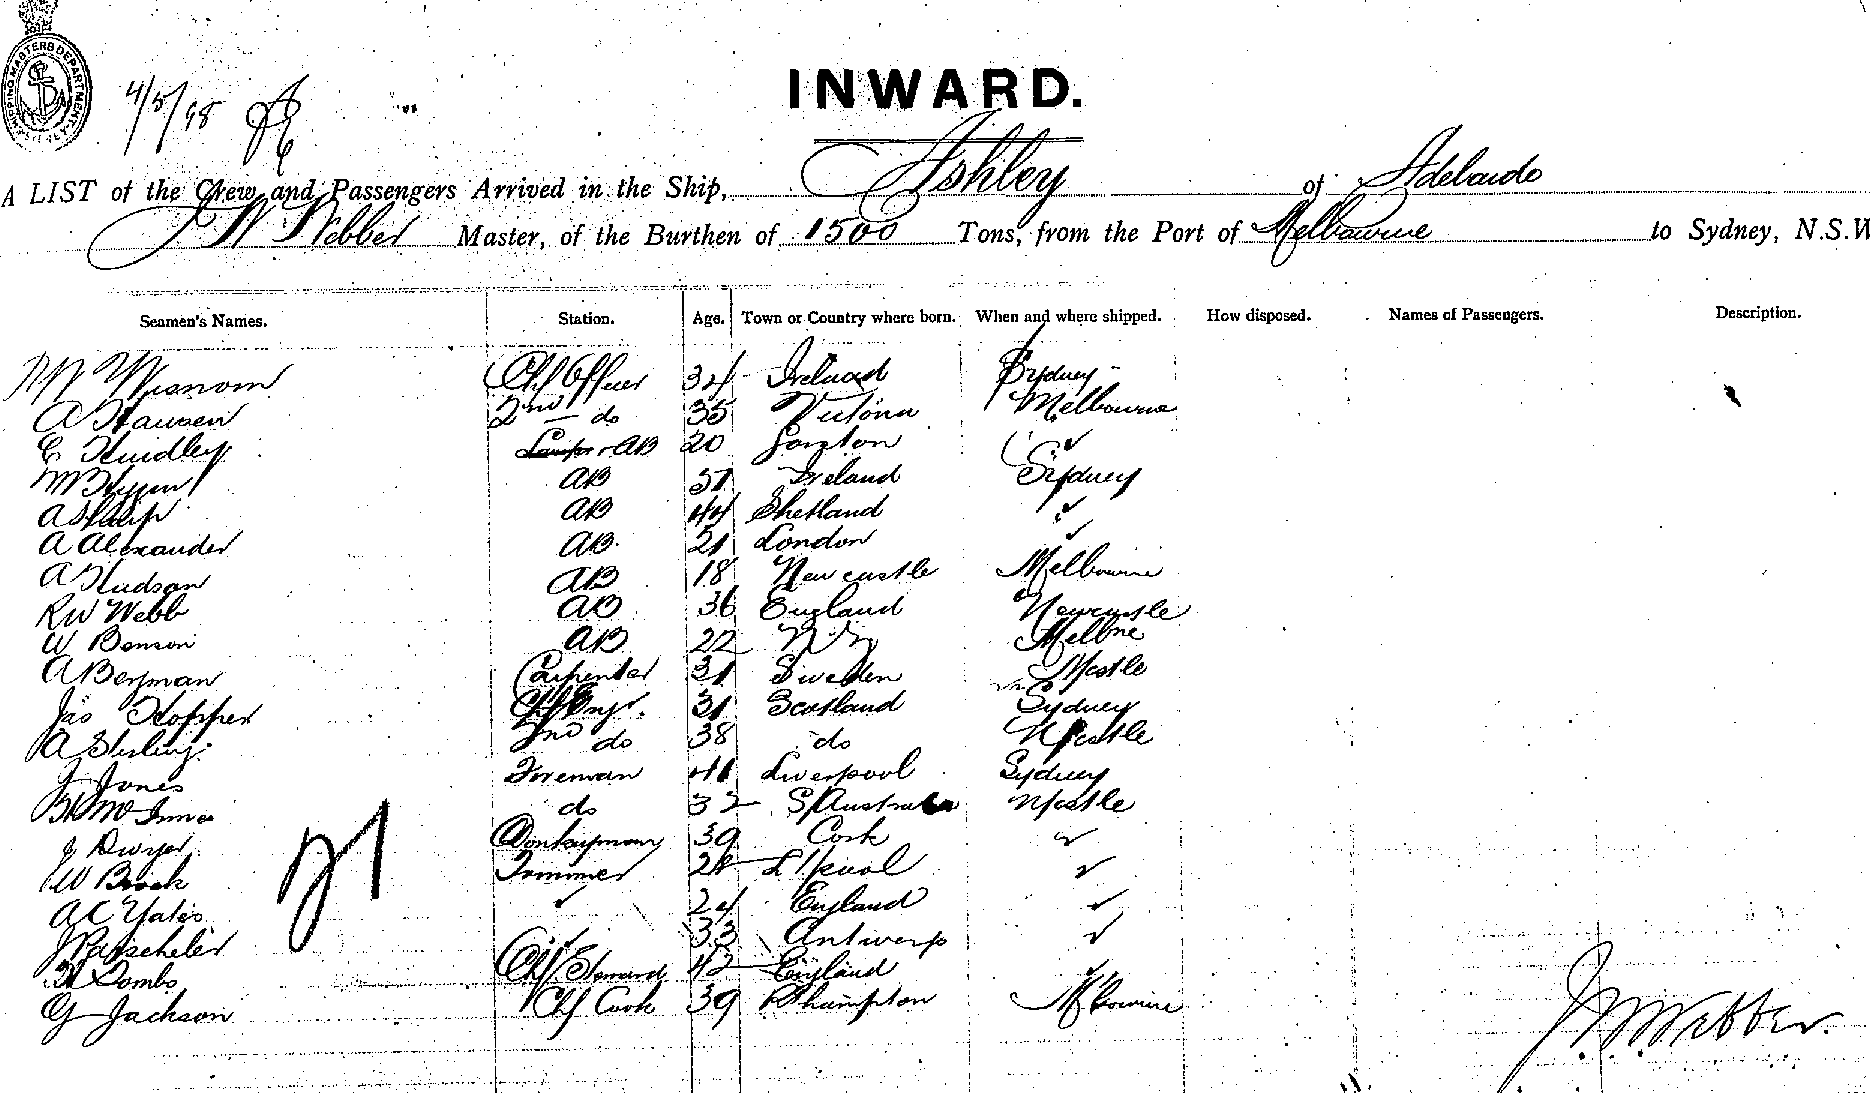 SHIPPING MASTERS DEPARTMENT
4/5/98
INWARD.
A LIST of the Crew and Passengers Arrived in the Ship, Ashley of Adelaide
J W Webber Master, of the Burthen of 1500 Tons, from the Port of Melbourne to Sydney, N.S.W
Seamen's Names. Station. Age. Town or Country where born. When and where shipped. How disposed. Names of Passengers. Description.
Chf Officer 34 Ireland Sydney
A Hansen 2nd do 35 Victoria Melbourne
E Hindley AB 20 ✓
AB 51 Ireland Sydney
A AB 44 Shetland ✓
A Alexander AB 21 London ✓
A Hudson AB 18 Newcastle Melbourne
RW Webb AB 36 England Newcastle
W Benson AB 22 N.Z Melbne
A Berjman Carpenter 31 Sweden N/castle
Jas Hopper Chf Engr. 31 Scotland Sydney
A Stirling 2nd do 38 do N/castle
J Jones Foreman 41 Liverpool Sydney
McInnes do 32 S/Australia N/castle
J Dwyer Donkeyman 39 Cork ✓
W Brook Trimmer L'pool ✓
AC Yates ✓ 24 England ✓
J ✓ 33 Antwerp ✓
H Combs Chf Steward 42 England ✓
G Jackson Chf Cook 39 S'hampton M'bourne
J.W.Webber.